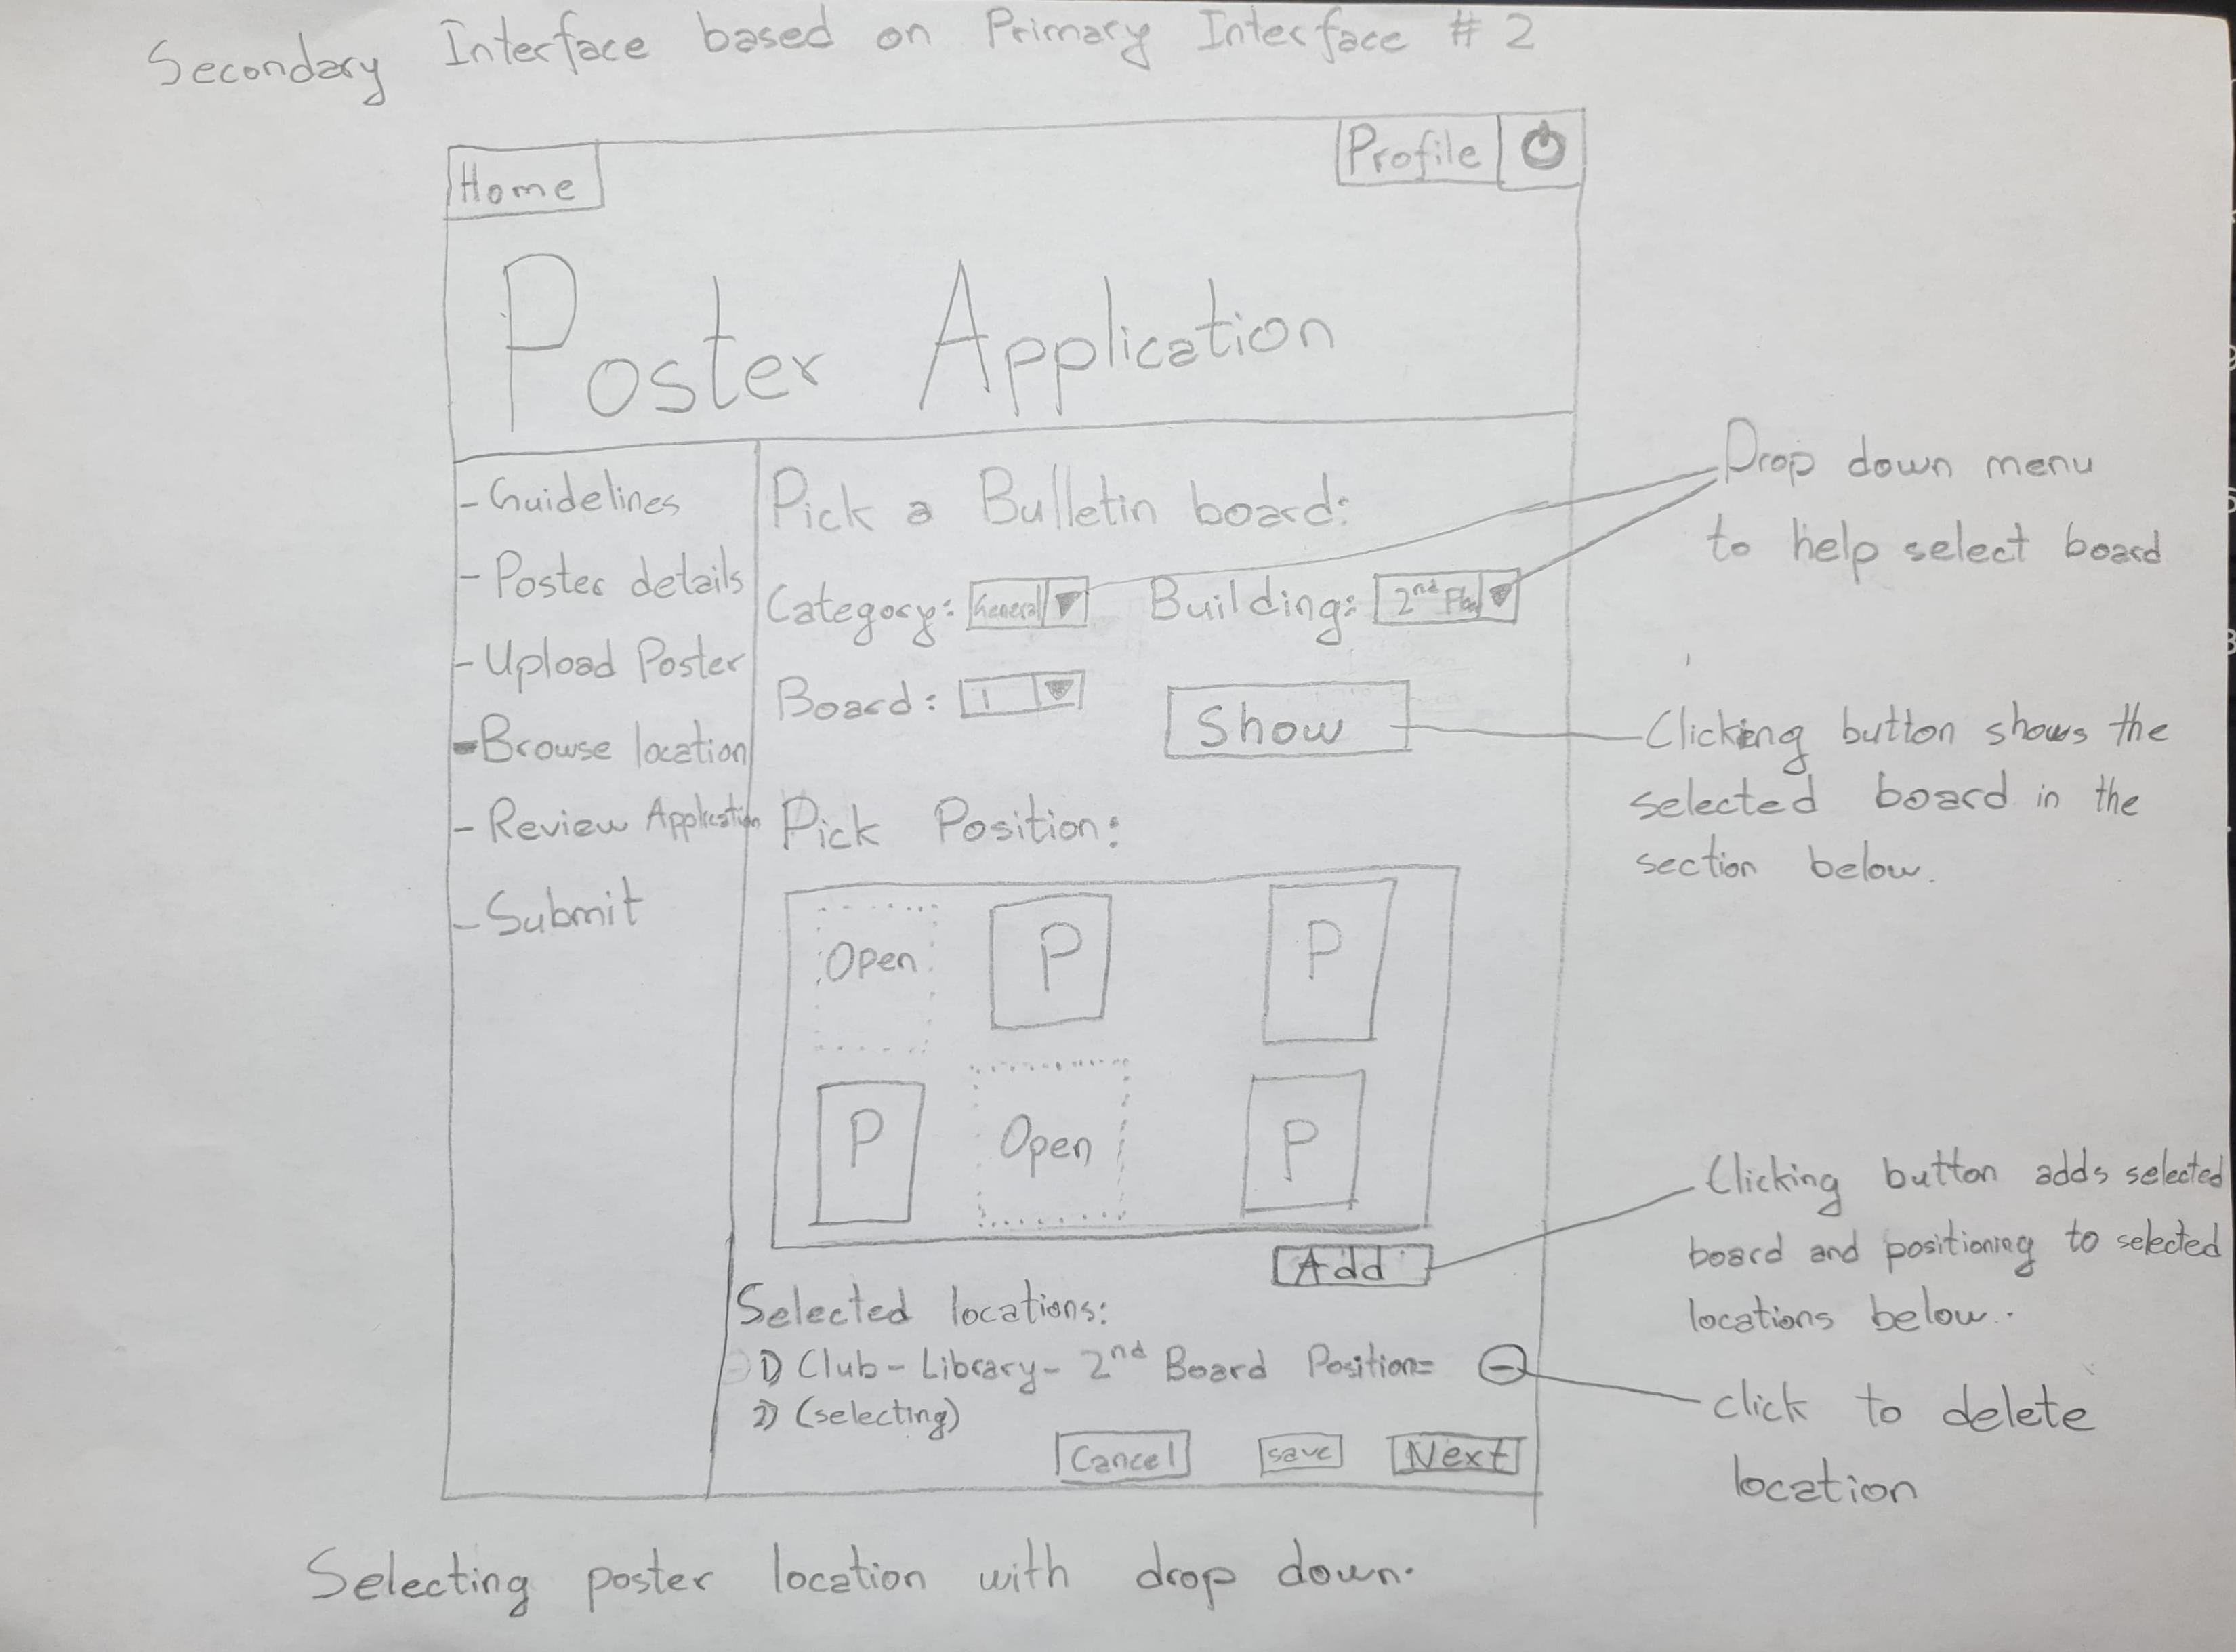 Secondary Interface based on Primary Interface # 2
Home
Profile
Poster Application
- Guidelines
- Poster details
- Upload Poster
- Browse location
- Review Application
- Submit
Pick a Bulletin board:
Category: General Building: 2nd
Board: 1
Show
Pick Position:
Open P P
P Open P
Add
Selected locations:
1) Club - Library - 2nd Board Position=
2) (selecting)
Cancel save Next
Drop down menu
to help select board
Clicking button shows the
selected board in the
section below.
Clicking button adds selected
board and positioning to selected
locations below.
click to delete
location
Selecting poster location with drop down.